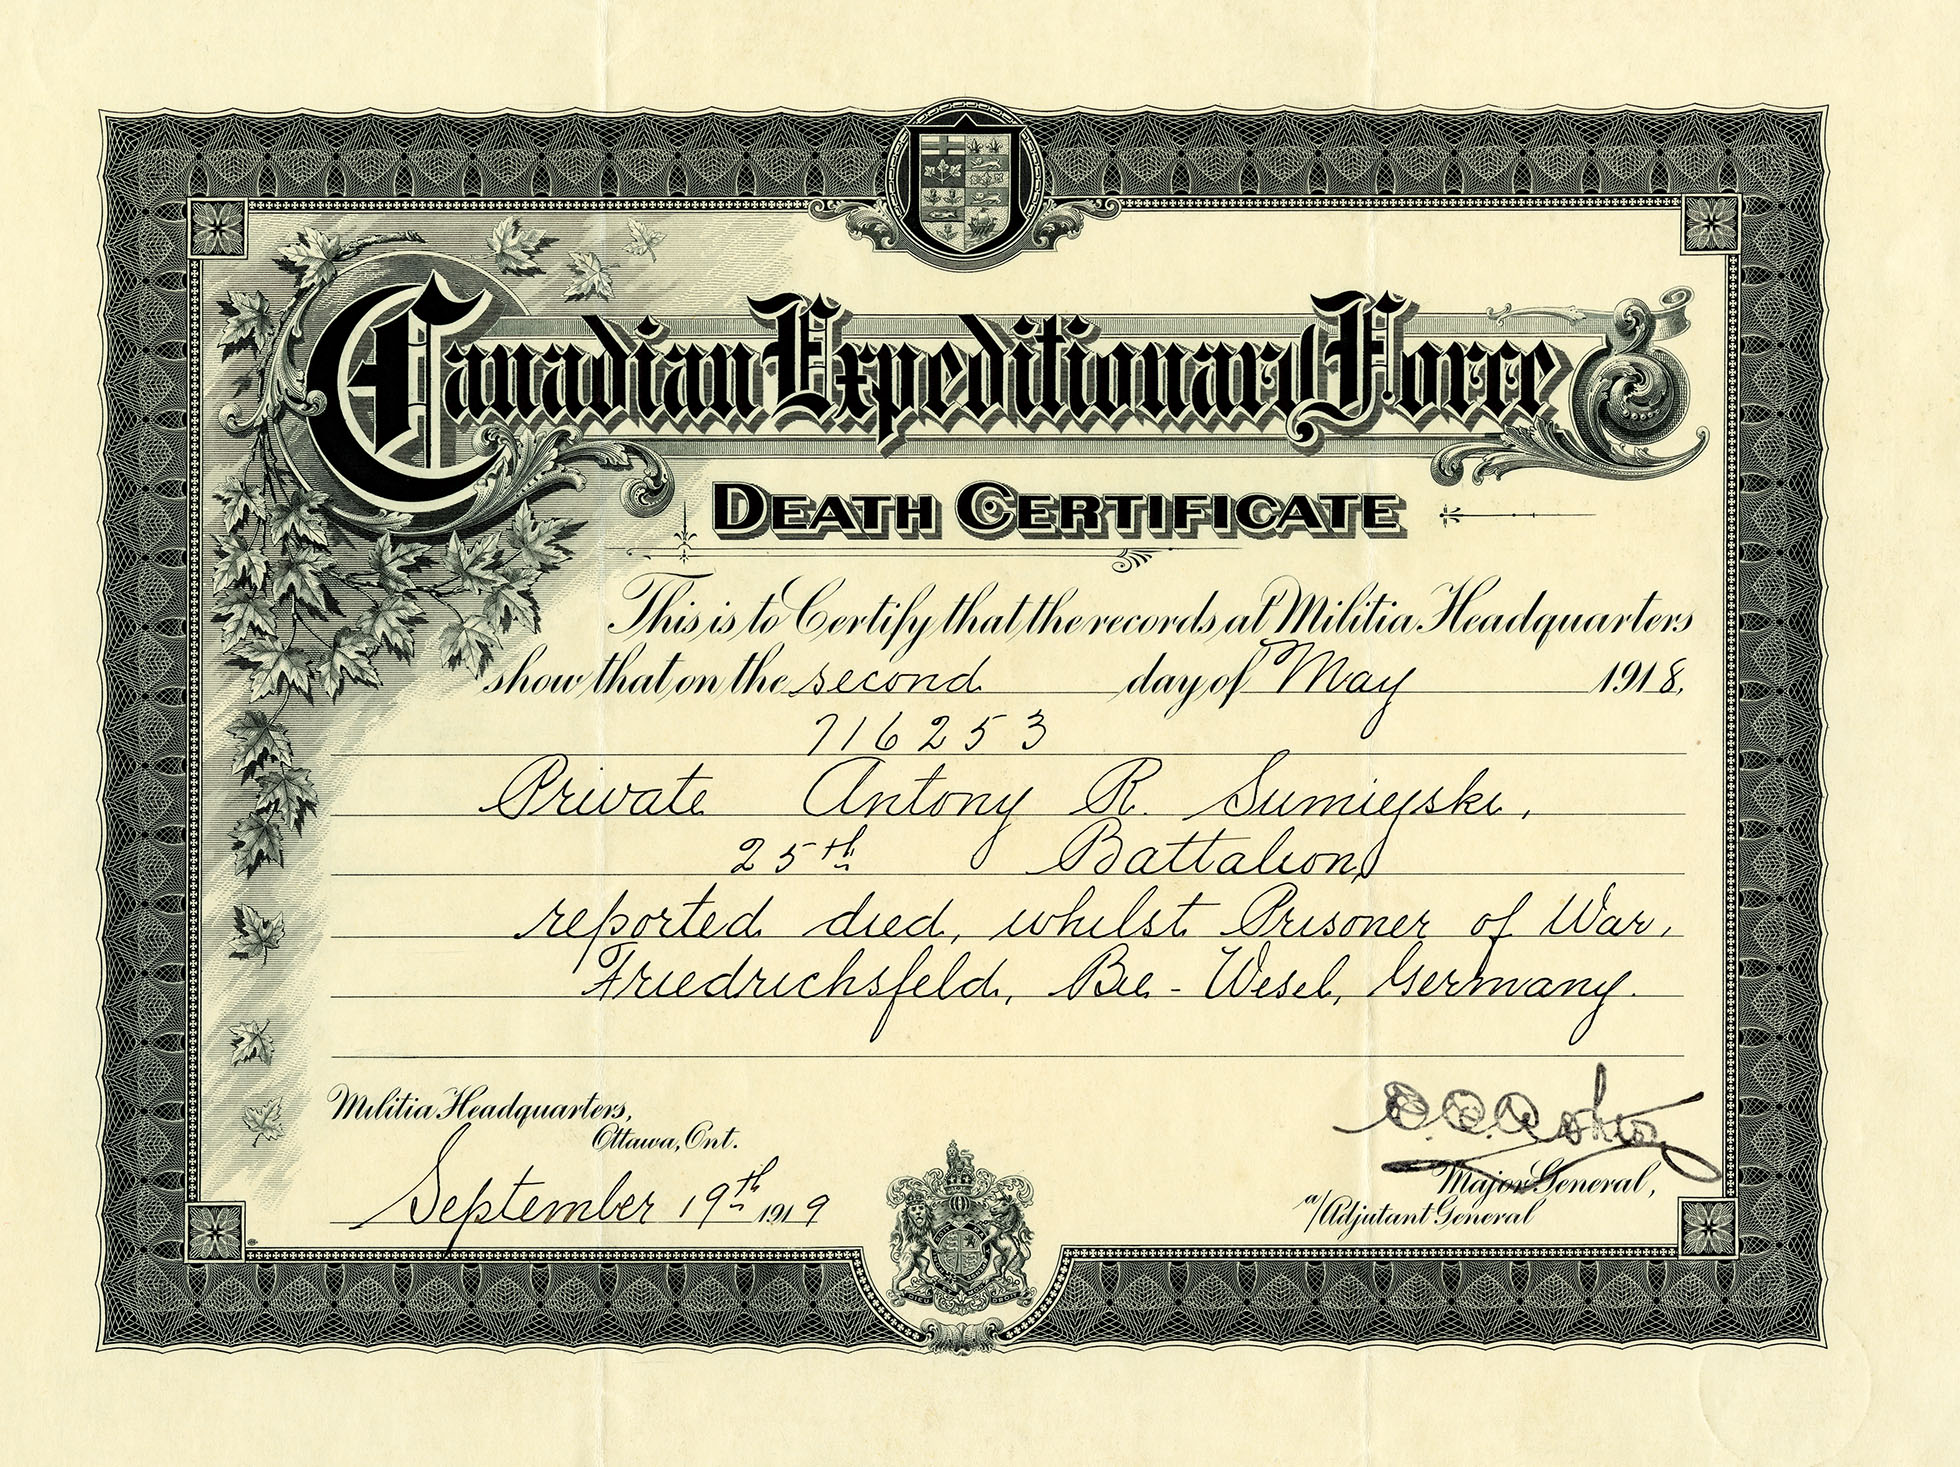 Canadian Expeditionary Force
DEATH CERTIFICATE
This is to Certify that the records at Militia Headquarters
show that on the second day of May 1918,
716253
Private Antony R. Sumiejski,
25th Battalion,
reported died, whilst Prisoner of War,
Friedrichsfeld, Bei-Wesel, Germany.
Militia Headquarters,
Ottawa, Ont.
September 19th 1919
Major General,
a/Adjutant General